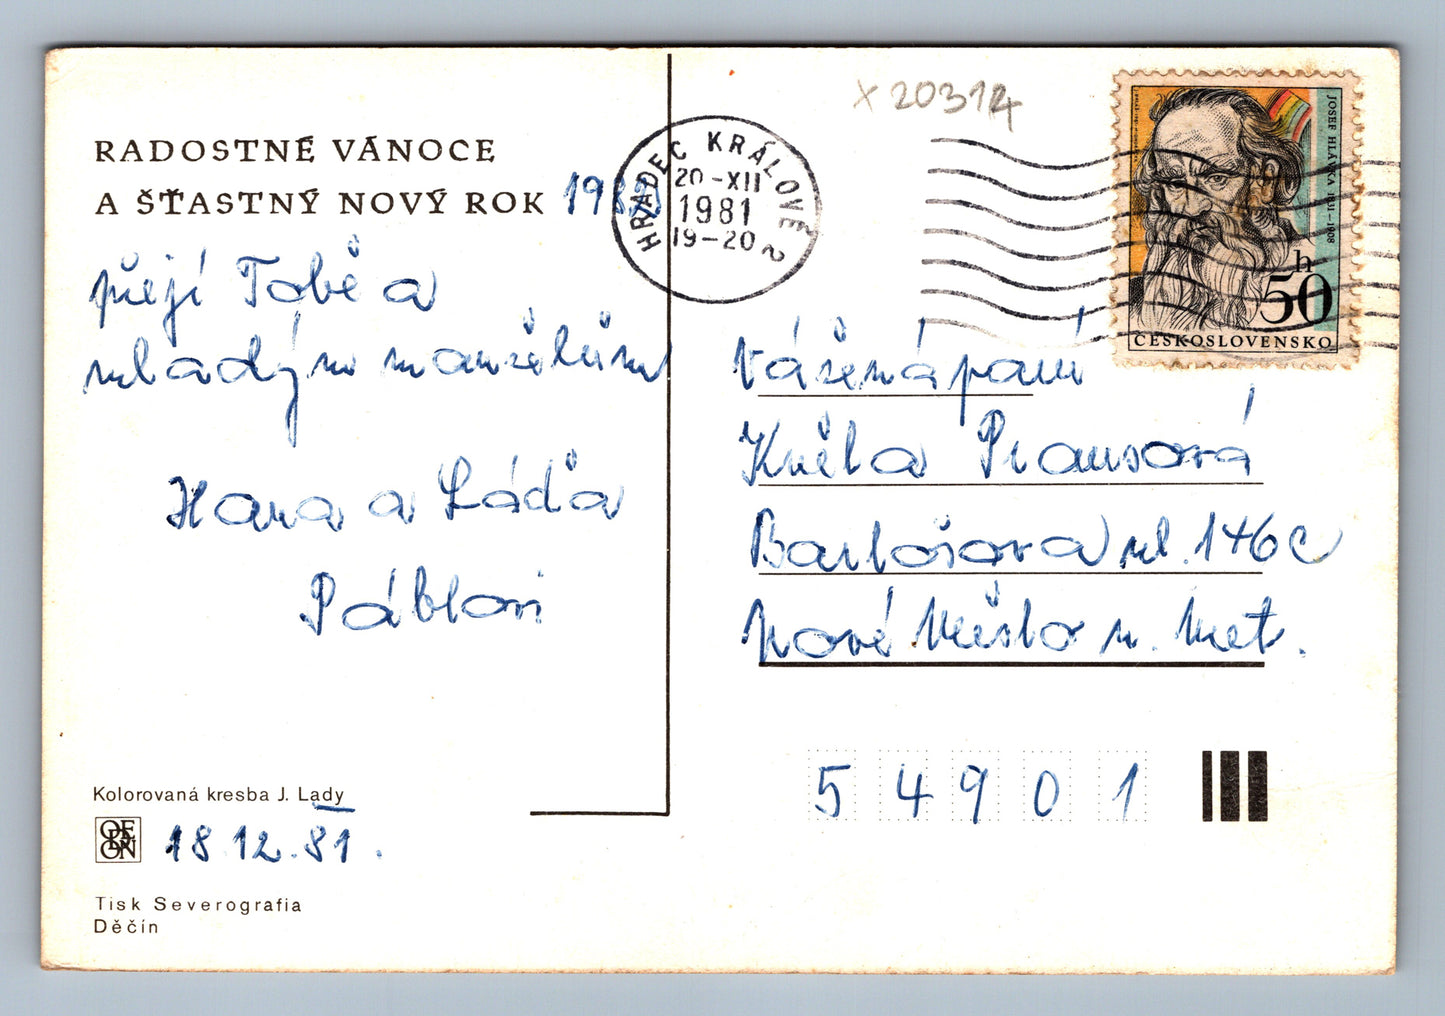 RADOSTNÉ VÁNOCE
A ŠŤASTNÝ NOVÝ ROK 1982
přejí Tobě a
mladým manželům
Hana a Láďa
Páblovi
Kolorovaná kresba J. Lady
ORBIS
18.12.81.
Tisk Severografia
Děčín
x 20314
HRADEC KRÁLOVÉ 2
20-XII
1981
19-20
JOSEF HLÁVKA 1831-1908
50 h
ČESKOSLOVENSKO
Vážená paní
Květa Prausová
Bartošova ul. 146 c
Nové Město n. Met.
54901